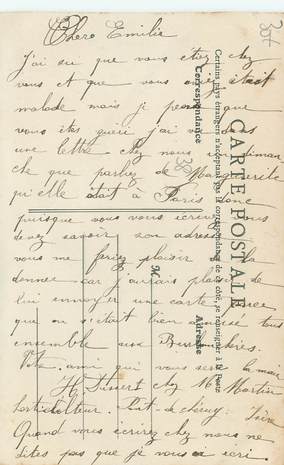 Chere Emilie
J'ai su que vous étiez chez
vous et que vous aviez était
malade mais je pense que
vous êtes guéri j'ai vu dans
une lettre chez nous diman
che que parliez de Marguerite
qu'elle était à Paris donc
puisque vous vous écrivez vous
devez savoir son adresse
vous me feriez plaisir de la
donner car j'aurais plaisir de
lui envoyer une carte parce
que on s'était bien amusé tous
ensemble aux
Votre ami qui vous serre la main
H. chez M. Martin
horticulteur. Pont-de-cheruy Isère
Quand vous écrirez chez nous ne
dites pas que je vous ai écri.
30f
30
CARTE POSTALE
Certains pays étrangers n'acceptant pas la correspondance de ce côté, se renseigner à la Poste
Correspondance
Adresse
M